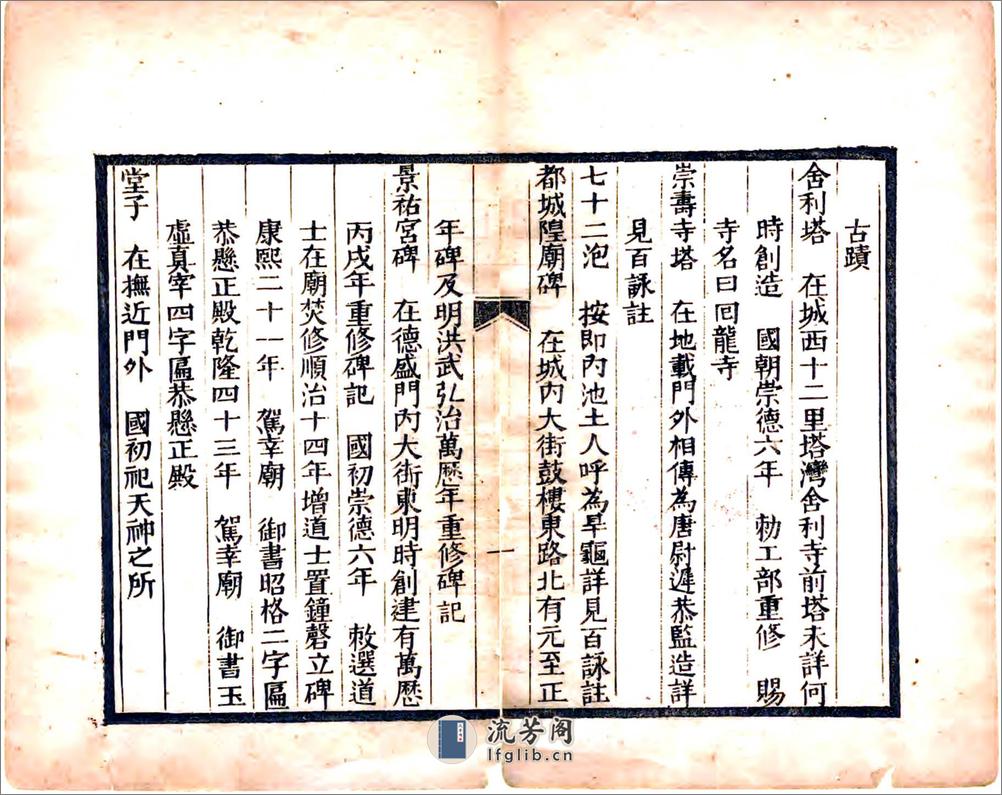 古蹟
舍利塔　在城西十二里塔灣舍利寺前塔未詳何
時創造　國朝崇德六年　勅工部重修　賜
寺名曰回龍寺
崇壽寺塔　在地載門外相傳為唐尉遲恭監造詳
見百詠註
七十二泡　按即內池土人呼為旱龜詳見百詠註
都城隍廟碑　在城內大街鼓樓東路北有元至正
一
年碑及明洪武弘治萬歷年重修碑記
景祐宮碑　在德盛門內大街東明時創建有萬歷
丙戌年重修碑記　國初崇德六年　敕選道
士在廟焚修順治十四年增道士置鐘磬立碑
康熙二十一年　駕幸廟　御書昭格二字匾
恭懸正殿乾隆四十三年　駕幸廟　御書玉
虛真宰四字匾恭懸正殿
堂子　在撫近門外　國初祀天神之所
流芳阁
lfglib.cn